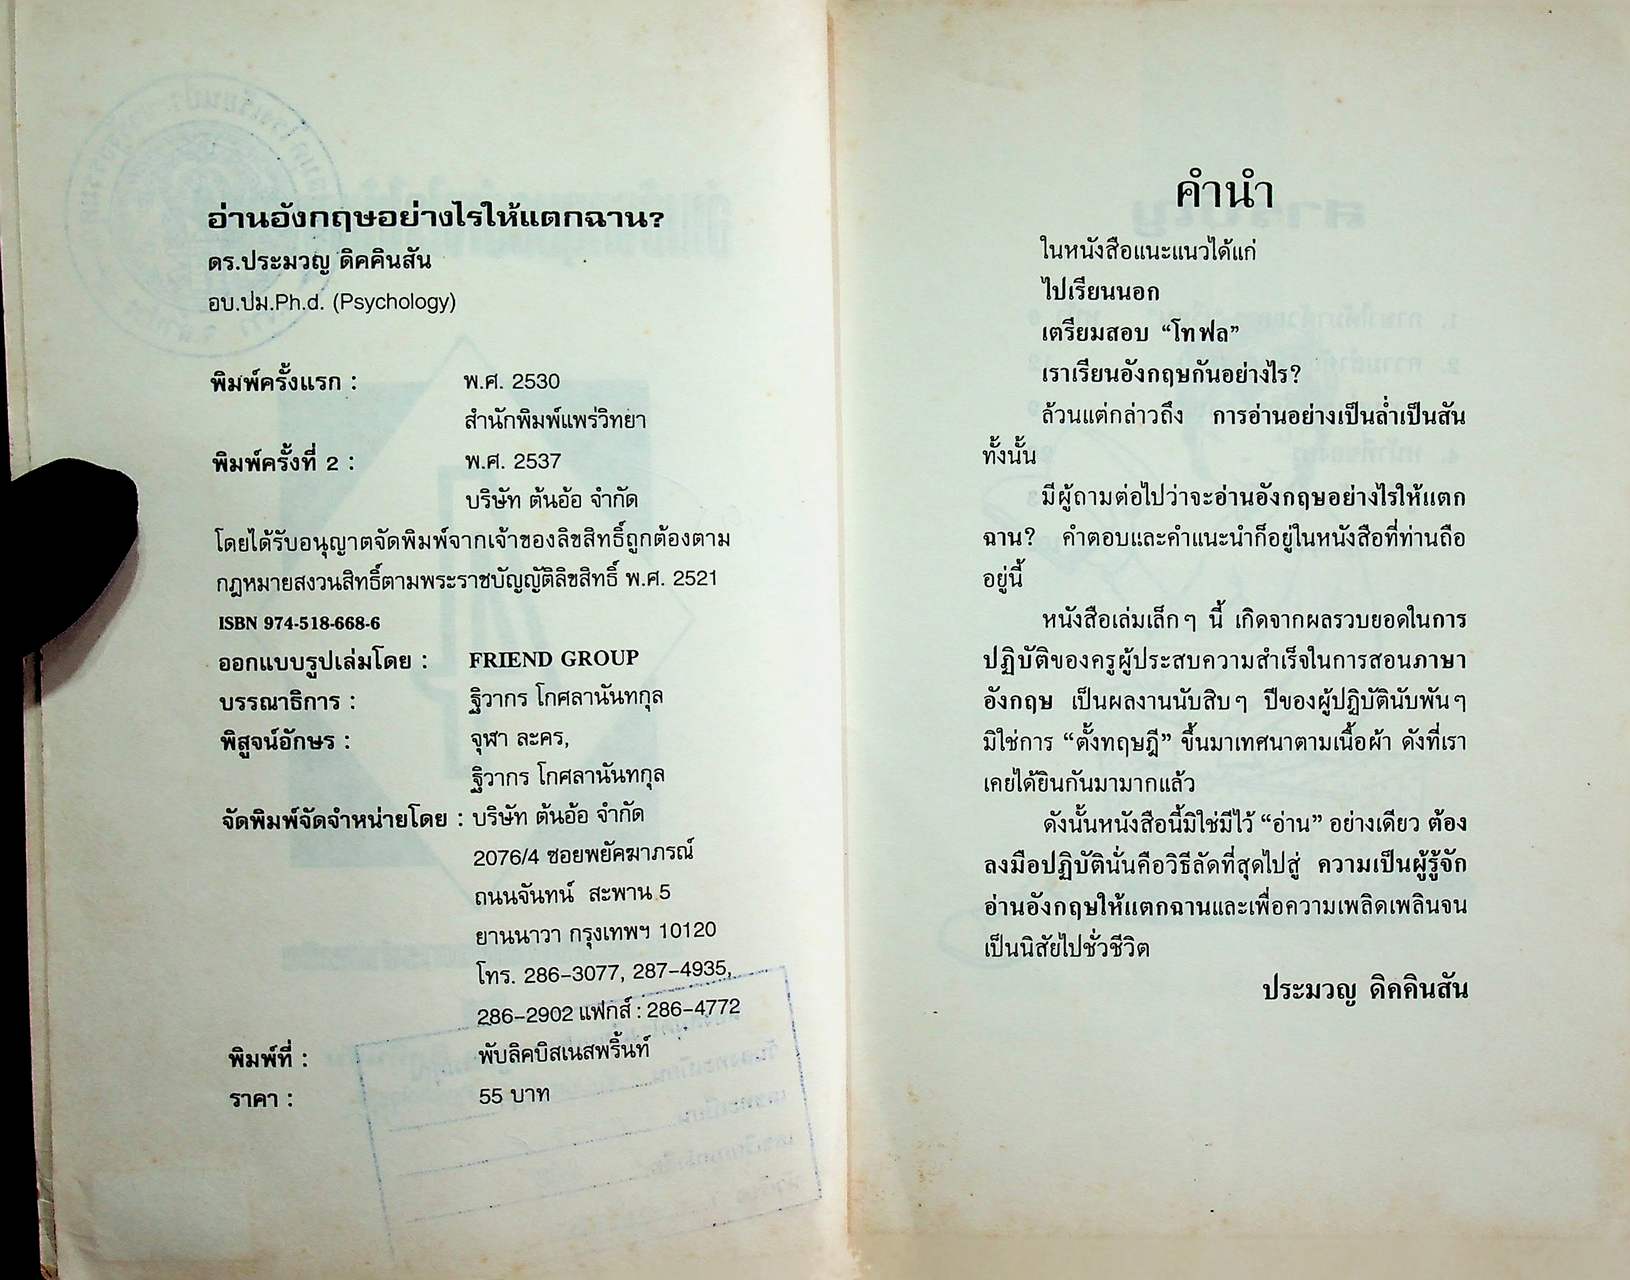 อ่านอังกฤษอย่างไรให้แตกฉาน?
ดร.ประมวญ ดิคคินสัน
อบ.ปม.Ph.d. (Psychology)
พิมพ์ครั้งแรก : พ.ศ. 2530
สำนักพิมพ์แพร่วิทยา
พิมพ์ครั้งที่ 2 : พ.ศ. 2537
บริษัท ต้นอ้อ จำกัด
โดยได้รับอนุญาตจัดพิมพ์จากเจ้าของลิขสิทธิ์ถูกต้องตาม
กฎหมายสงวนสิทธิ์ตามพระราชบัญญัติลิขสิทธิ์ พ.ศ. 2521
ISBN 974-518-668-6
ออกแบบรูปเล่มโดย : FRIEND GROUP
บรรณาธิการ : ฐิวากร โกศลานันทกุล
พิสูจน์อักษร : จุฬา ละคร,
ฐิวากร โกศลานันทกุล
จัดพิมพ์จัดจำหน่ายโดย : บริษัท ต้นอ้อ จำกัด
2076/4 ซอยพยัคฆาภรณ์
ถนนจันทน์ สะพาน 5
ยานนาวา กรุงเทพฯ 10120
โทร. 286-3077, 287-4935,
286-2902 แฟกส์ : 286-4772
พิมพ์ที่ : พับลิคบิสเนสพริ้นท์
ราคา : 55 บาท
คำนำ
ในหนังสือแนะแนวได้แก่
ไปเรียนนอก
เตรียมสอบ “โทฟล”
เราเรียนอังกฤษกันอย่างไร?
ล้วนแต่กล่าวถึง การอ่านอย่างเป็นล่ำเป็นสัน
ทั้งนั้น
มีผู้ถามต่อไปว่าจะอ่านอังกฤษอย่างไรให้แตก
ฉาน? คำตอบและคำแนะนำก็อยู่ในหนังสือที่ท่านถือ
อยู่นี้
หนังสือเล่มเล็กๆ นี้ เกิดจากผลรวบยอดในการ
ปฏิบัติของครูผู้ประสบความสำเร็จในการสอนภาษา
อังกฤษ เป็นผลงานนับสิบๆ ปีของผู้ปฏิบัตินับพันๆ
มิใช่การ “ตั้งทฤษฎี” ขึ้นมาเทศนาตามเนื้อผ้า ดังที่เรา
เคยได้ยินกันมามากแล้ว
ดังนั้นหนังสือนี้มิใช่มีไว้ “อ่าน” อย่างเดียว ต้อง
ลงมือปฏิบัตินั่นคือวิธีลัดที่สุดไปสู่ ความเป็นผู้รู้จัก
อ่านอังกฤษให้แตกฉานและเพื่อความเพลิดเพลินจน
เป็นนิสัยไปชั่วชีวิต
ประมวญ ดิคคินสัน